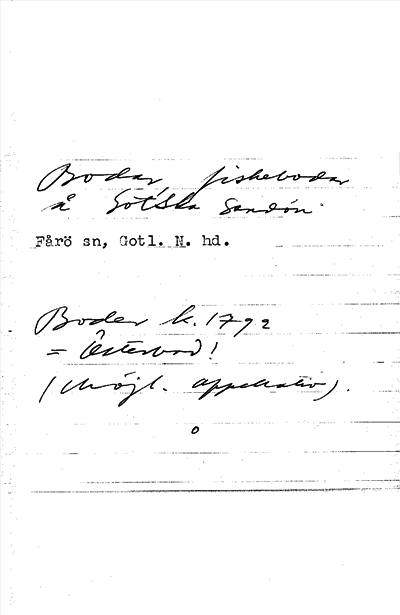 Bodar, fiskebodar
å Gotska Sandön.
Fårö sn, Gotl. N. hd.
Boder k. 1792
= Österbod!
(Möjl. appellativ).
o